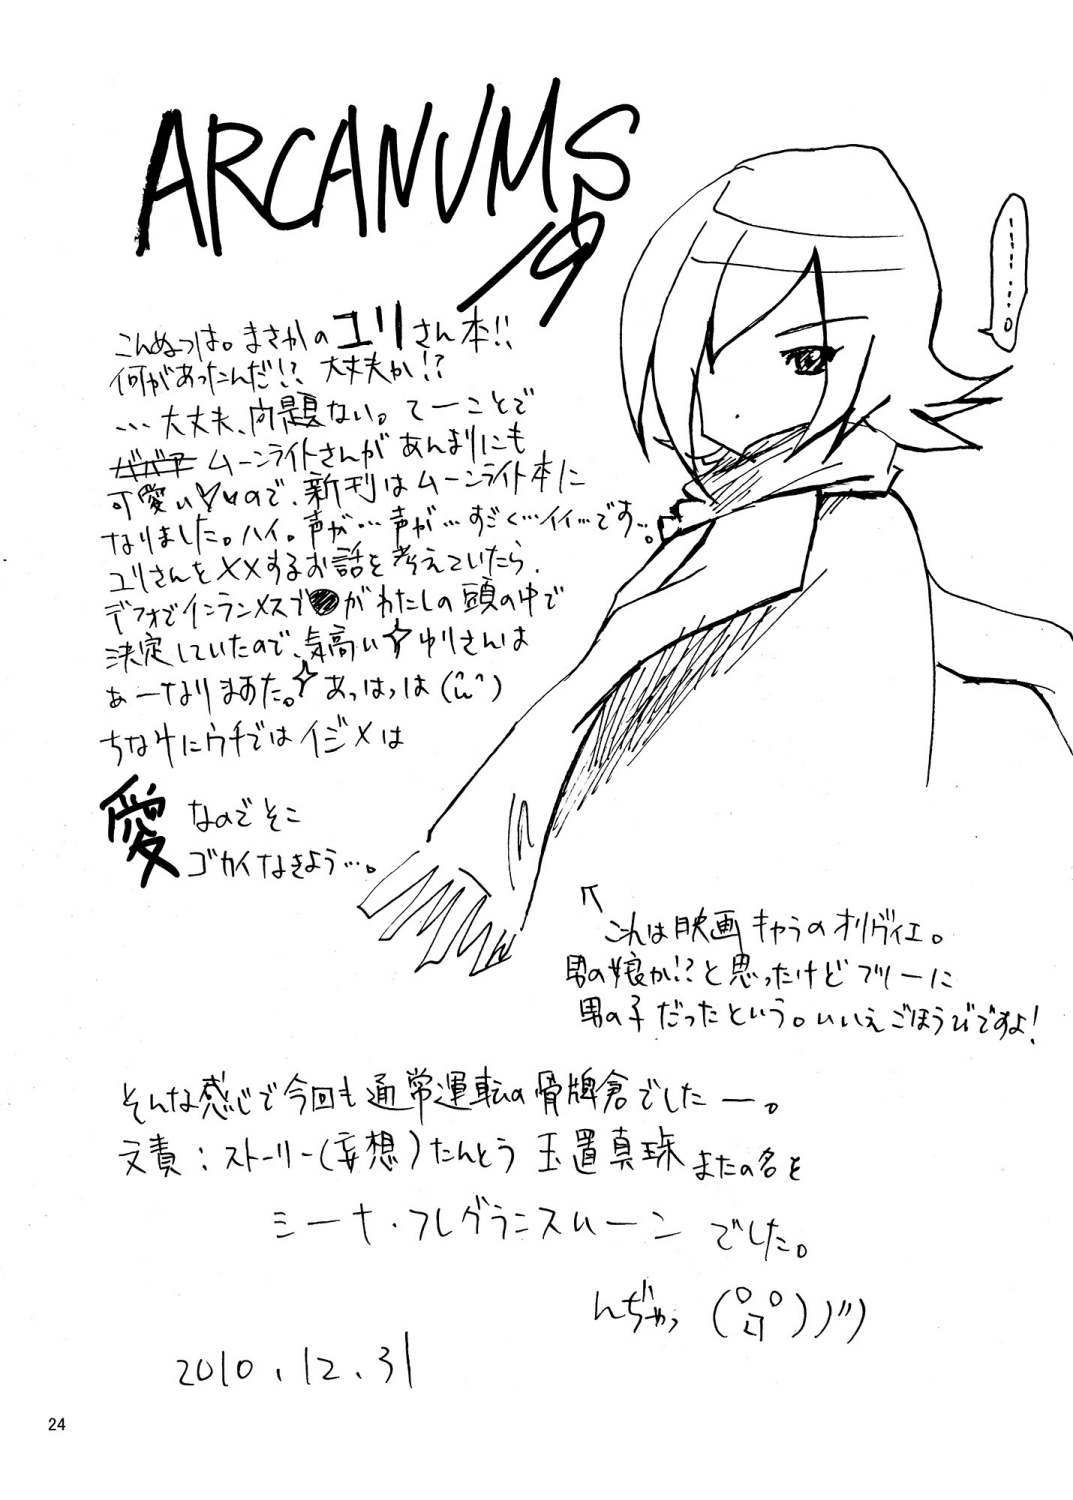 ARCANUMS
19
こんぬつは。まさかのユリさん本!!
何があったんだ!? 大丈夫か!?
…大丈夫、問題ない。てーことで
ババア ムーンライトさんがあんまりにも
可愛い♥♥ので、新刊はムーンライト本に
なりました。ハイ。声が…声が…すごく…イイ…です…。
ユリさんを××するお話を考えていたら、
デフォでインランメスで●がわたしの頭の中で
決定していたので、気高い☆ゆりさんは
ぁーなりまあた。☆あっはっは(^ω^)
ちなみにウチではイジメは
愛 なのでそこ
ゴカイなきよう…。
………。
↖
これは映画キャラのオリヴィエ。
男の娘か!?と思ったけどフツーに
男の子だったという。いいえごほうびですよ!
そんな感じで今回も通常運転の骨牌倉でしたー。
文責:ストーリー(妄想)たんとう 玉置真珠 またの名を
シーナ・フレグランスムーン でした。
んぢゃっ ( ゚Д゚)ﾉｼ
2010.12.31
24